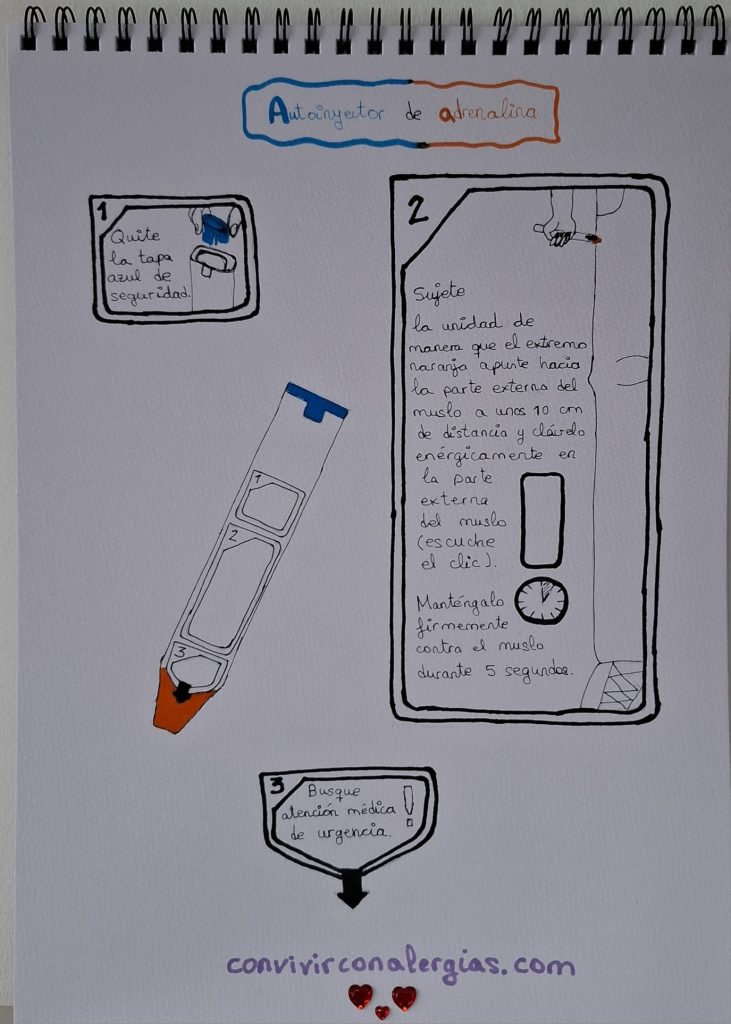 Autoinyector de adrenalina
1
Quite
la tapa
azul de
seguridad.
2
Sujete
la unidad de
manera que el extremo
naranja apunte hacia
la parte externa del
muslo a unos 10 cm
de distancia y clávelo
enérgicamente en
la parte
externa
del muslo
(escuche
el clic).
Manténgalo
firmemente
contra el muslo
durante 5 segundos.
1
2
3
3
Busque
atención médica
de urgencia.
!
convivirconalergias.com